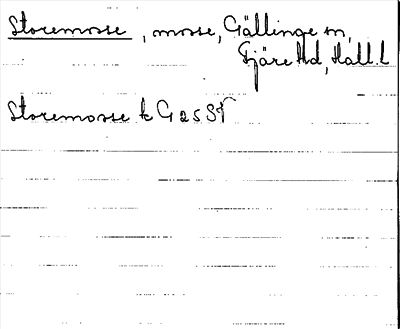 Storemosse, mosse, Gällinge sn,
Fjäre hd, Hall. l
Storemosse tc G 2 s SV